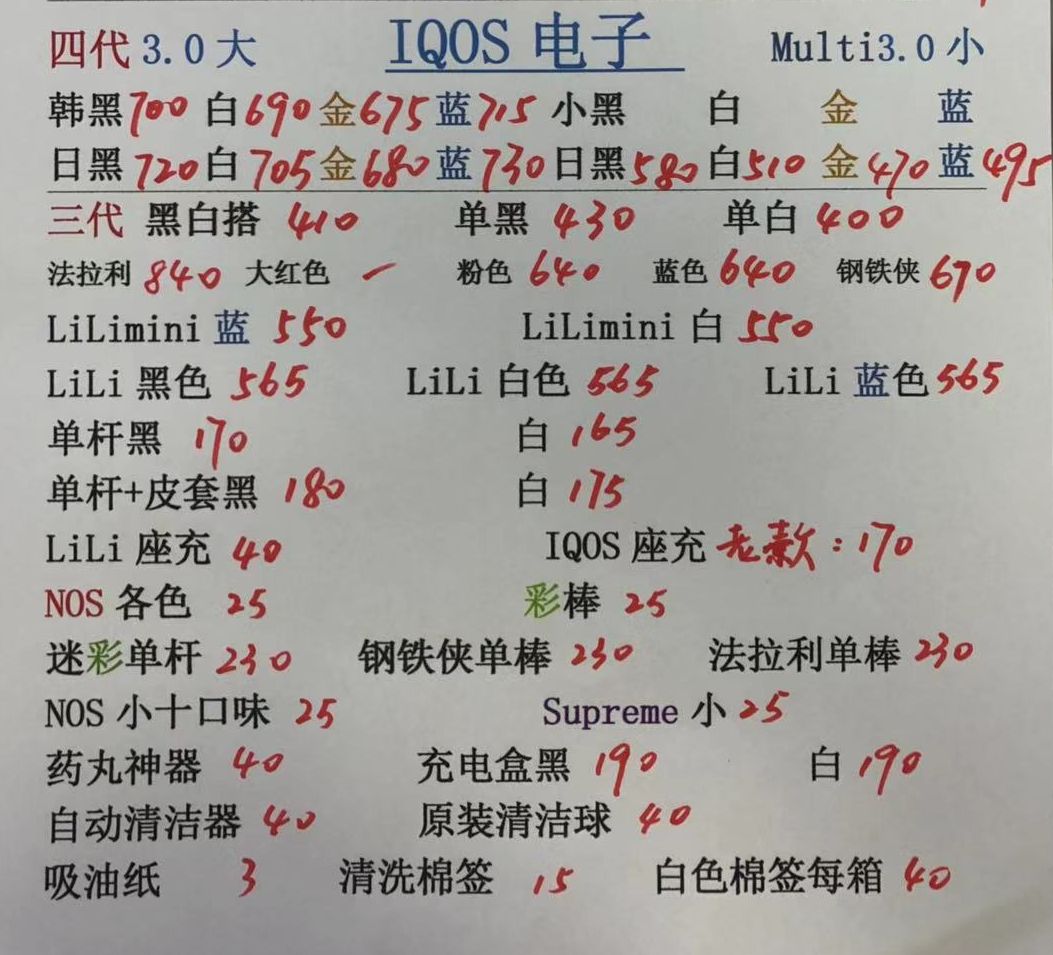 四代 3.0 大 IQOS 电子 Multi3.0 小
韩黑 700 白 690 金 675 蓝 715 小黑 白 金 蓝
日黑 720 白 705 金 680 蓝 730 日黑 580 白 510 金 470 蓝 495
三代 黑白搭 410 单黑 430 单白 400
法拉利 840 大红色 一 粉色 640 蓝色 640 钢铁侠 670
LiLimini 蓝 550 LiLimini 白 550
LiLi 黑色 565 LiLi 白色 565 LiLi 蓝色 565
单杆黑 170 白 165
单杆+皮套黑 180 白 175
LiLi 座充 40 IQOS 座充 老款：170
NOS 各色 25 彩棒 25
迷彩单杆 230 钢铁侠单棒 230 法拉利单棒 230
NOS 小十口味 25 Supreme 小 25
药丸神器 40 充电盒黑 190 白 190
自动清洁器 40 原装清洁球 40
吸油纸 3 清洗棉签 15 白色棉签每箱 40